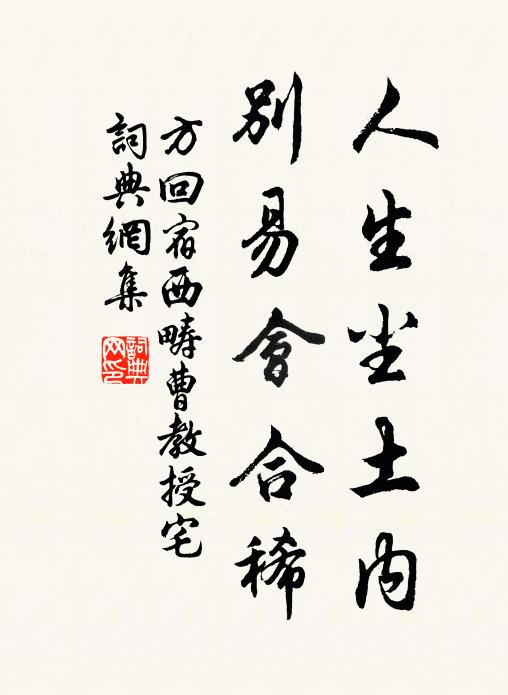 人生尘土内
別易會合稀
方回宿西疇曹教授宅
詞典網集
詞典網印